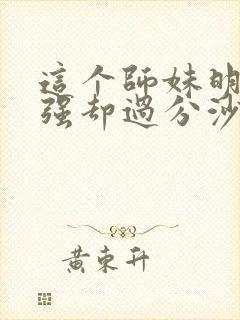 這个師妹明
强却過分沙
黄東升